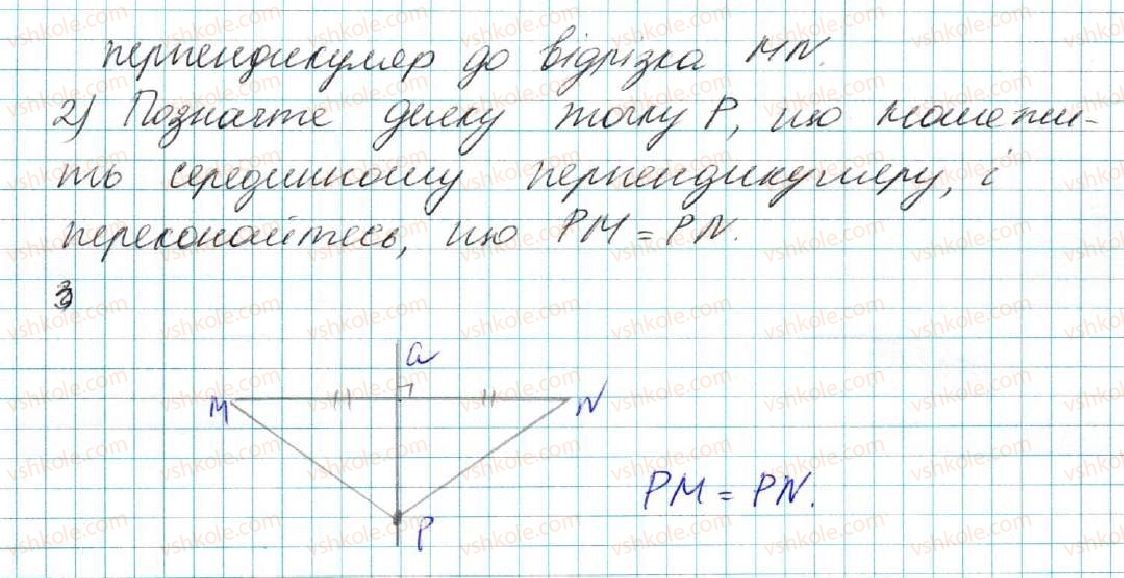 перпендикуляр до відрізка MN.
2) Позначте деяку точку P, що належи-
ть серединному перпендикуляру, і
переконайтесь, що PM = PN.
3
a
M
N
PM = PN.
P
vshkole.com